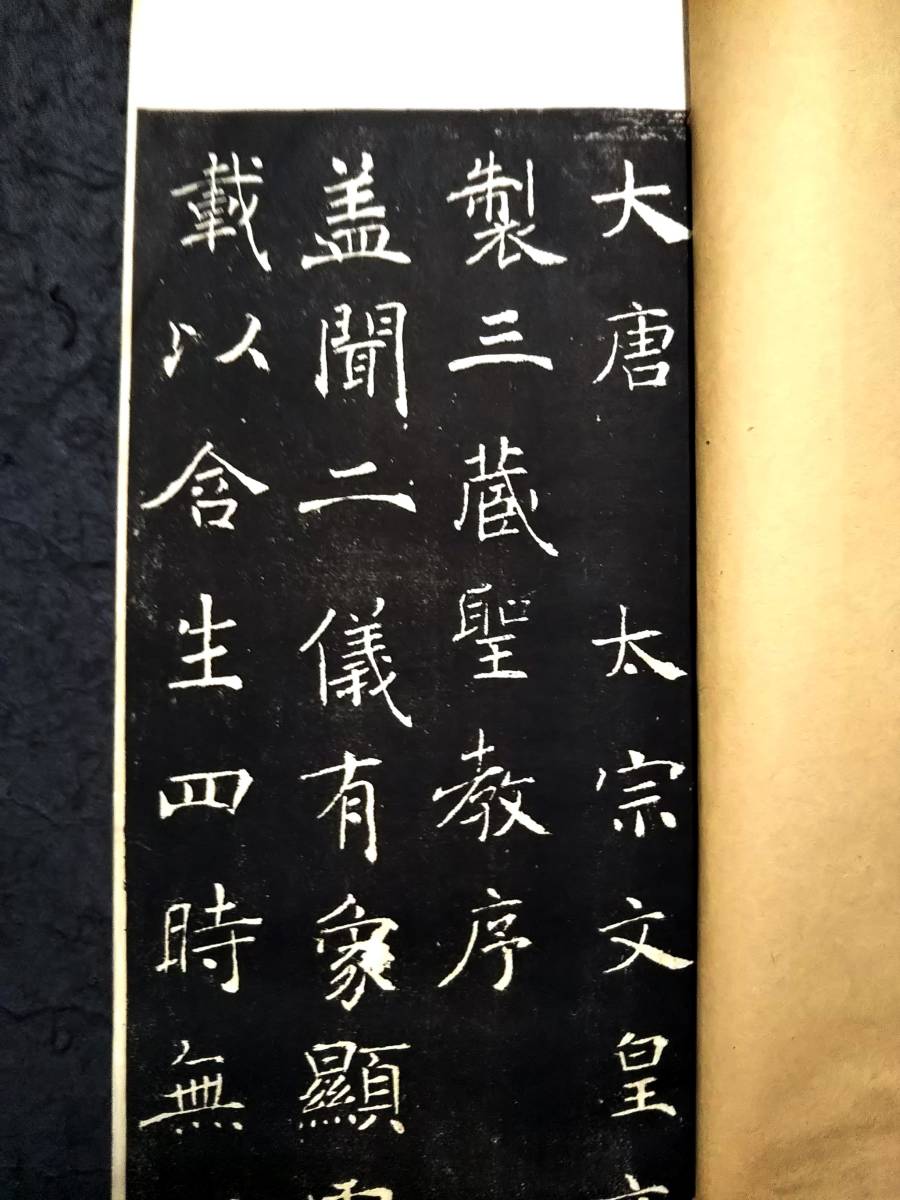 大唐 太宗文皇
製三蔵聖教序
盖聞二儀有象顯
載以含生四時無